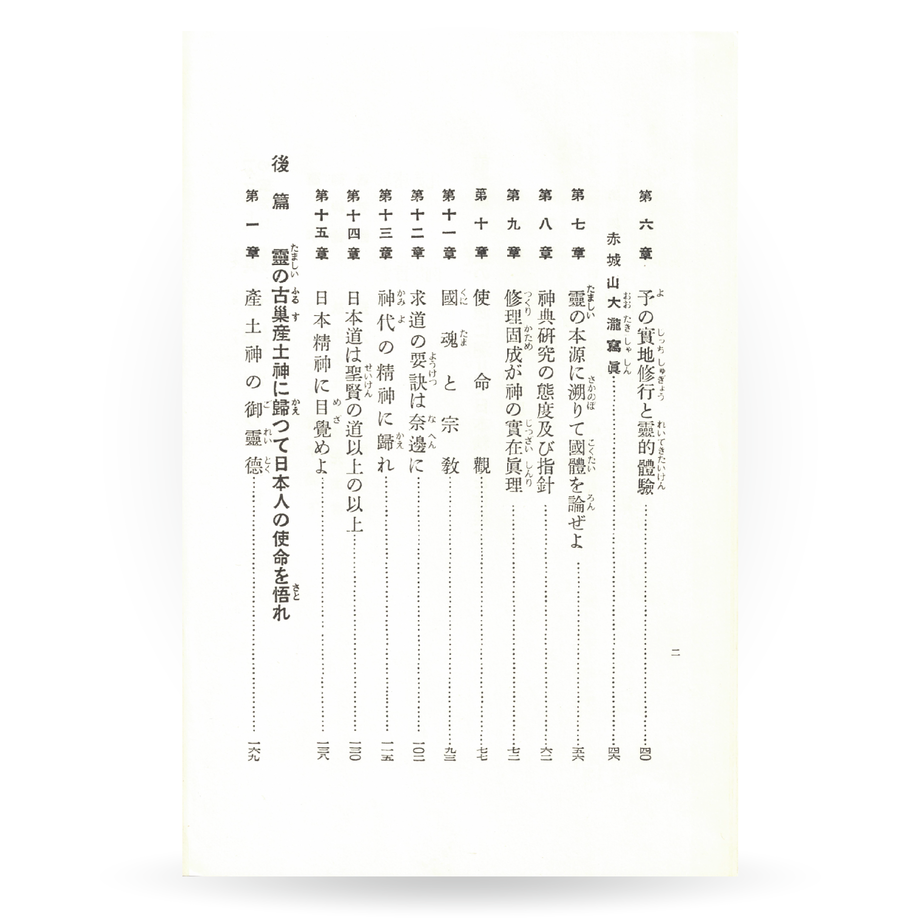 二
第六章 予の實地修行と靈的體驗……四〇
赤城山大瀧寫眞……四六
第七章 靈の本源に溯りて國體を論ぜよ……五六
第八章 神典研究の態度及び指針……六二
第九章 修理固成が神の實在眞理……七二
第十章 使命觀……七七
第十一章 國魂と宗教……九三
第十二章 求道の要訣は奈邊に……一〇二
第十三章 神代の精神に歸れ……一一五
第十四章 日本道は聖賢の道以上の以上……一三〇
第十五章 日本精神に目覺めよ……一三八
後篇 靈の古巣産土神に歸つて日本人の使命を悟れ
第一章 產土神の御靈德……一六九